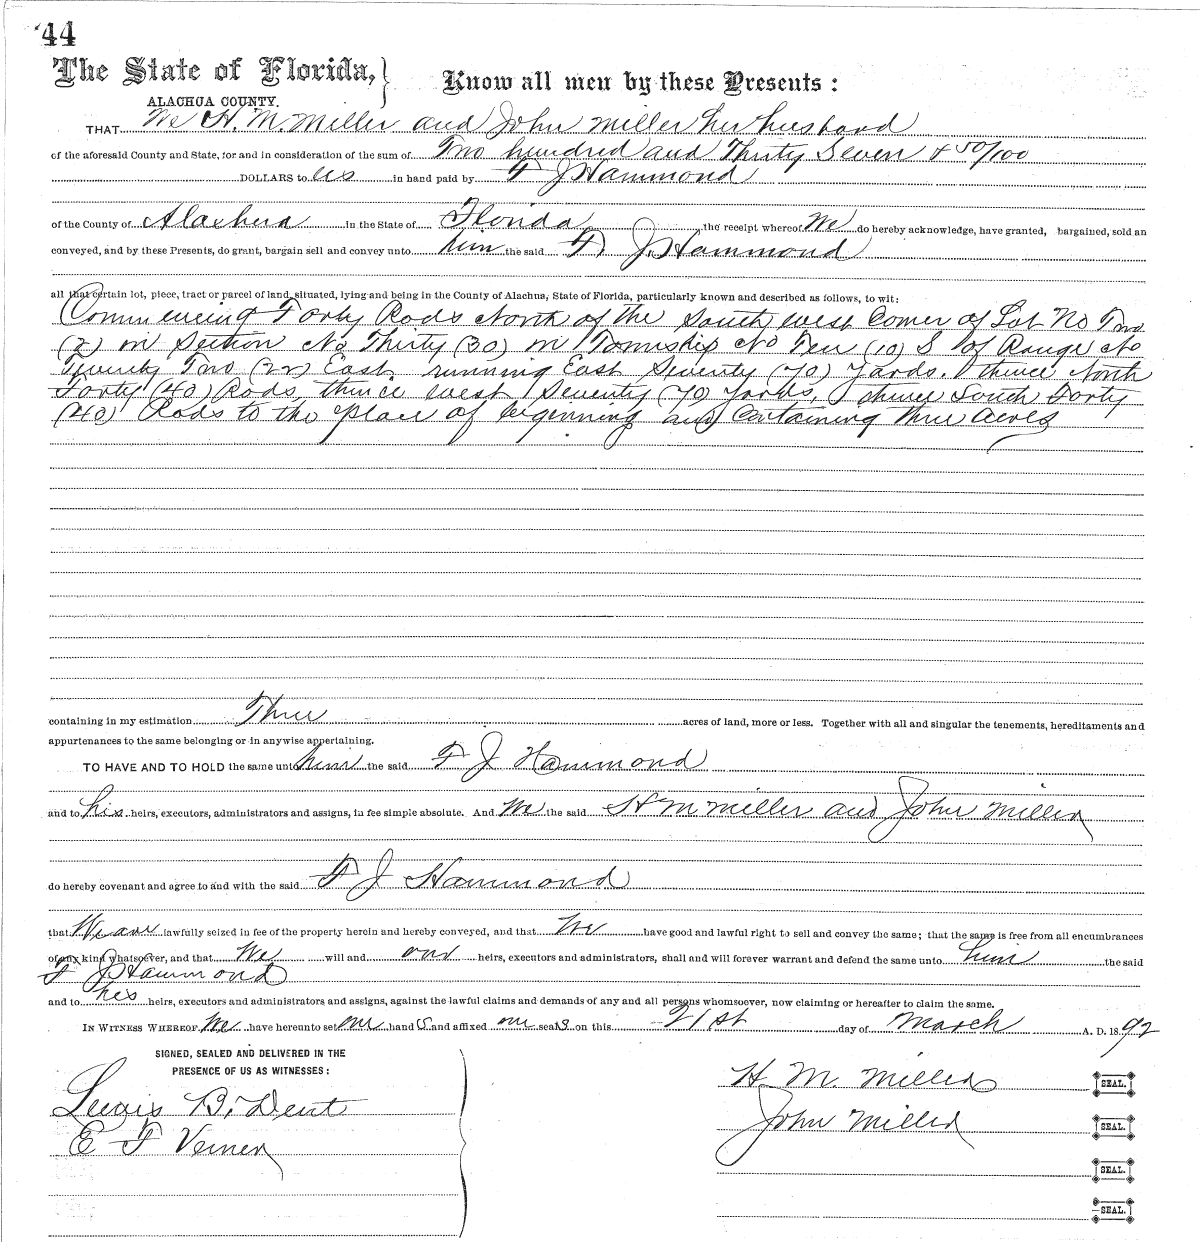 44
The State of Florida,} Know all men by these Presents:
ALACHUA COUNTY.
THAT We H. M. Miller and John Miller her husband
of the aforesaid County and State, for and in consideration of the sum of Two hundred and Thirty Seven + 50/100
DOLLARS to us in hand paid by F J Hammond
of the County of Alachua in the State of Florida the receipt whereof We do hereby acknowledge, have granted, bargained, sold an
conveyed, and by these Presents, do grant, bargain sell and convey unto him the said F J. Hammond
all that certain lot, piece, tract or parcel of land, situated, lying and being in the County of Alachua, State of Florida, particularly known and described as follows, to wit:
Commencing Forty Rods North of the South west Corner of Lot No Two
(2) in Section No Thirty (30) in Township No Ten (10) S of Range No
Twenty Two (22) East, running East Seventy (70) Yards. thence North
Forty (40) Rods, thence west Seventy (70 Yards, thence South Forty
(40) Rods to the place of beginning and Containing three acres
containing in my estimation Three acres of land, more or less. Together with all and singular the tenements, hereditaments and
appurtenances to the same belonging or in anywise appertaining.
TO HAVE AND TO HOLD the same unto him the said F J Hammond
and to his heirs, executors, administrators and assigns, in fee simple absolute. And We the said H M Miller and John Miller
do hereby covenant and agree to and with the said F J Hammond
that We are lawfully seized in fee of the property herein and hereby conveyed, and that We have good and lawful right to sell and convey the same; that the same is free from all encumbrances
of any kind whatsoever, and that We will and our heirs, executors and administrators, shall and will forever warrant and defend the same unto him the said
F J Hammond
and to his heirs, executors and administrators and assigns, against the lawful claims and demands of any and all persons whomsoever, now claiming or hereafter to claim the same.
IN WITNESS WHEREOF We have hereunto set our hands and affixed our seals on this 21st day of March A. D. 1892
SIGNED, SEALED AND DELIVERED IN THE
PRESENCE OF US AS WITNESSES:
H. M. Miller SEAL.
Lewis B. Dent
John Miller SEAL.
E F Verner
SEAL.
SEAL.